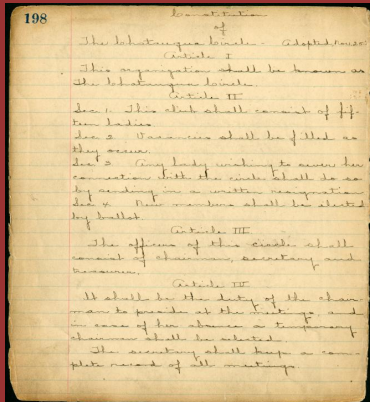 198
Constitution
of
The Chatauqua Circle - Adopted, Nov. 20
Article I
This organization shall be known as
The Chatauqua Circle.
Article II
Sec 1. This club shall consist of fif-
teen ladies.
Sec 2 Vacancies shall be filled as
they occur.
Sec 3 Any lady wishing to sever her
connection with the circle shall do so
by sending in a written resignation
Sec 4 New members shall be elected
by ballot.
Article III
The officers of this circle shall
consist of chairman, secretary and
treasurer.
Article IV
It shall be the duty of the chair-
man to preside at the meetings, and
in case of her absence a temporary
chairman shall be selected.
The secretary shall keep a com-
plete record of all meetings.